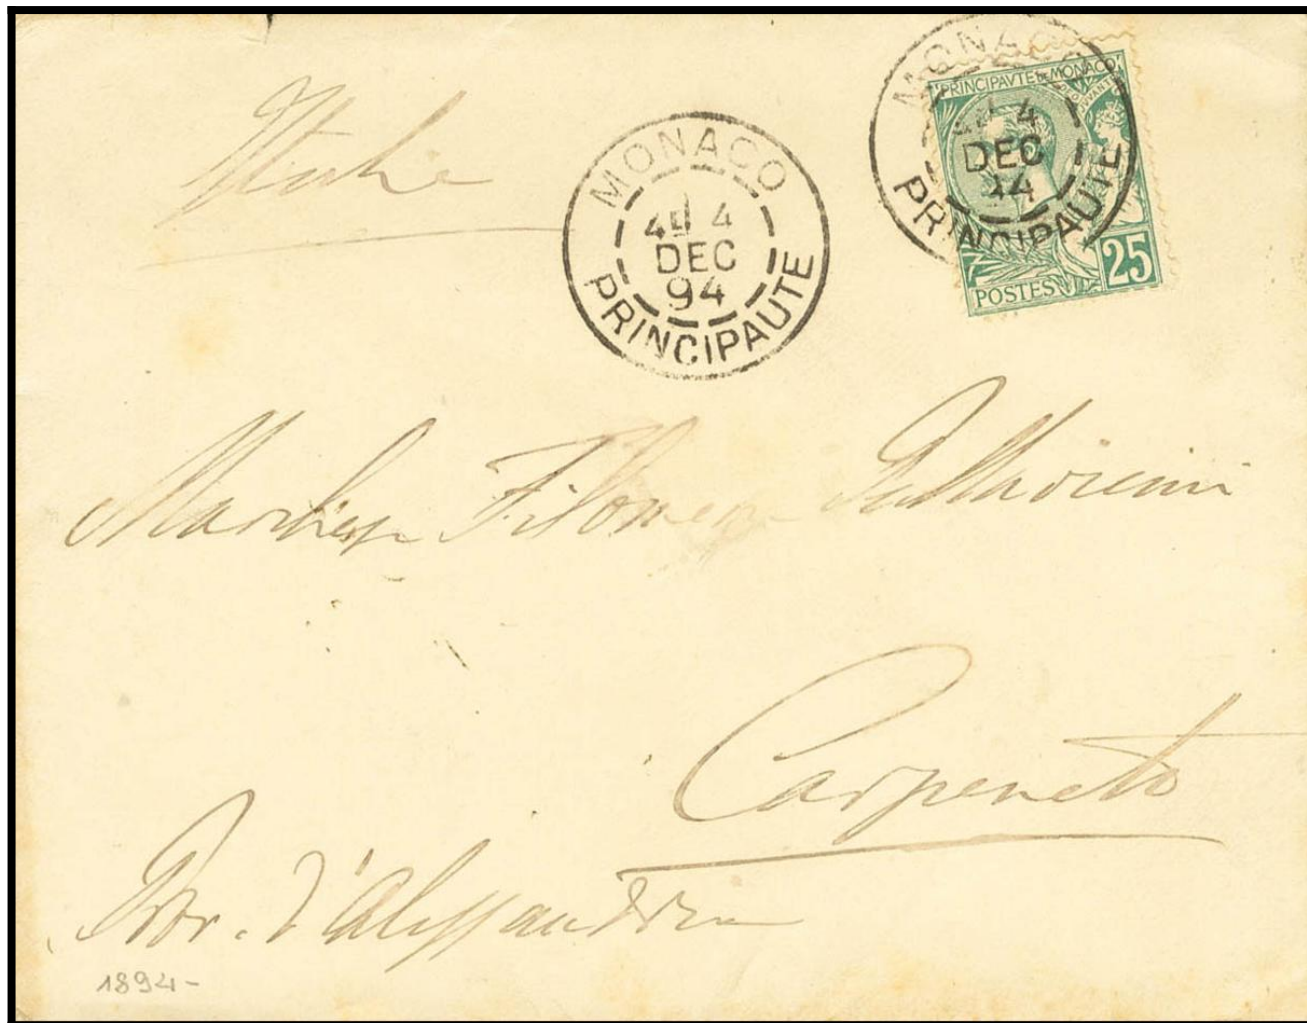 Italie
MONACO
4E 4
DEC
94
PRINCIPAUTE
MONACO
4
DEC
94
PRINCIPAUTE
PRINCIPAVTE DE MONACO
POSTES
25
Filomena
Carpeneto
Prov. d'Alessandria
1894-